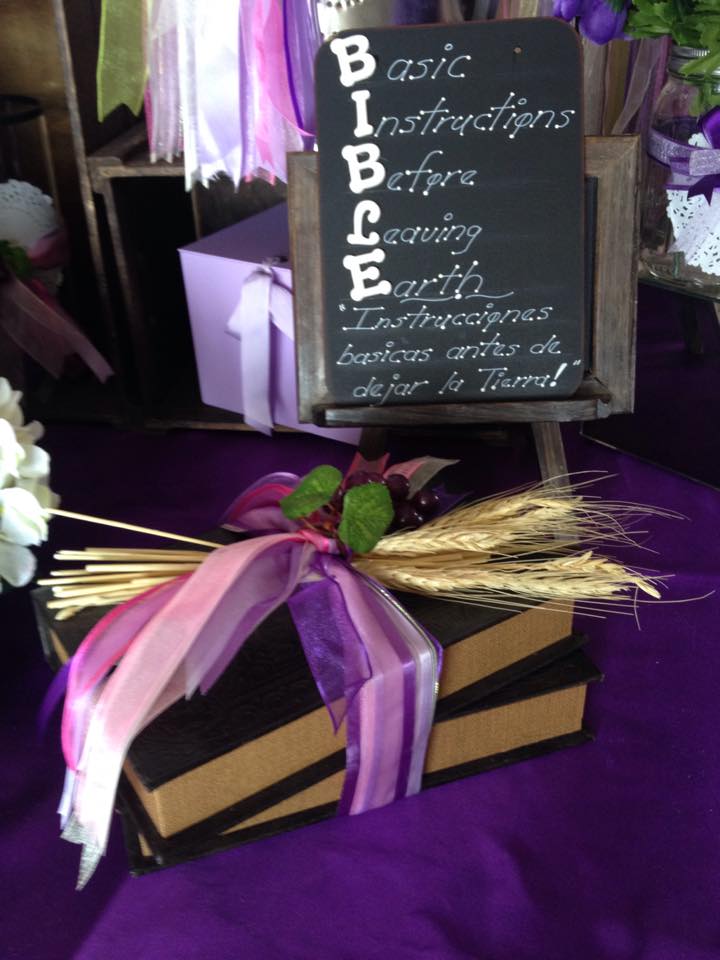 Basic
Instructions
Before
Leaving
Earth
"Instrucciones
basicas antes de
dejar la Tierra!"